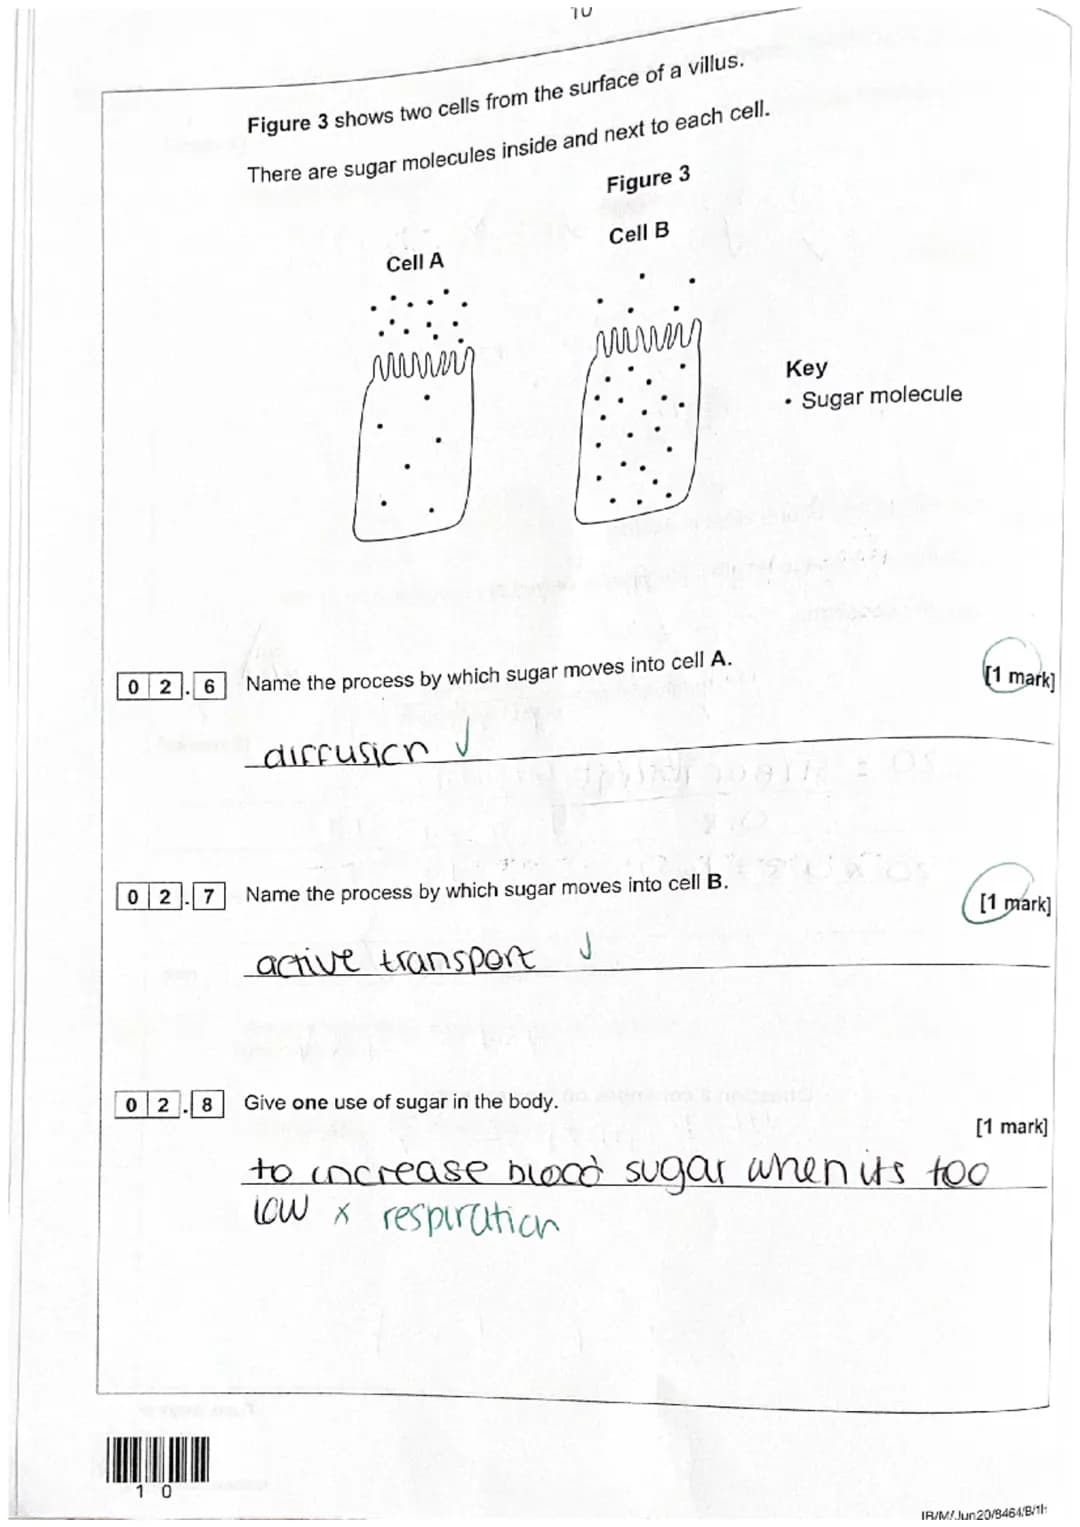 10
Figure 3 shows two cells from the surface of a villus.
There are sugar molecules inside and next to each cell.
Figure 3
Cell A
Cell B
Key
• Sugar molecule
0 2 . 6 Name the process by which sugar moves into cell A.
[1 mark]
diffusion ✓
0 2 . 7 Name the process by which sugar moves into cell B.
[1 mark]
active transport ✓
0 2 . 8 Give one use of sugar in the body.
[1 mark]
to increase blood sugar when its too
low x respiration
1 0
IB/M/Jun20/8464/B/1H